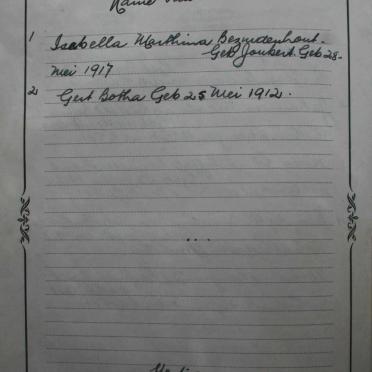 Name
1 Isabella Marthina Bezuidenhout.
Geb Joubert. Geb 28-
Mei 1917
2 Gert Botha Geb 25 Mei 1912.
...